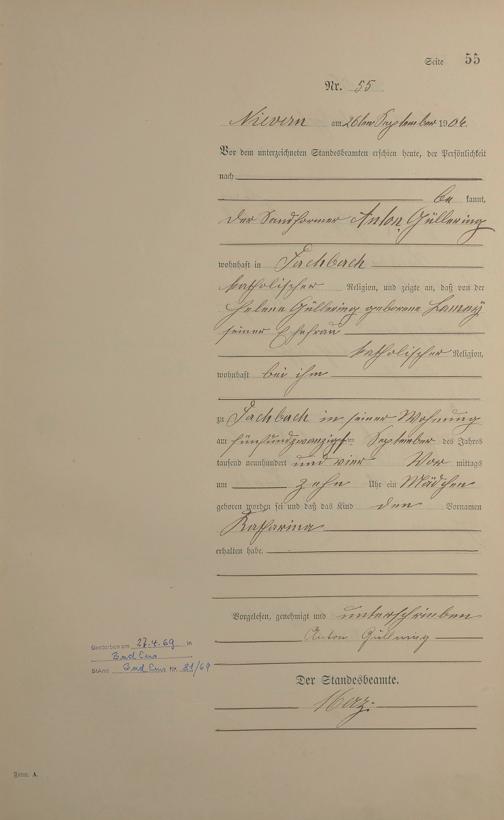 Seite 55
Nr. 55
Nievern am 26ten September 1904.
Vor dem unterzeichneten Standesbeamten erschien heute, der Persönlichkeit
nach
be kannt,
der Sandformer Anton Güllering
wohnhaft in Fachbach
katholischer Religion, und zeigte an, daß von der
Helene Güllering geborene
seiner Ehefrau
katholischer Religion,
wohnhaft bei ihm
zu Fachbach in seiner Wohnung
am fünfundzwanzigsten September des Jahres
tausend neunhundert und vier Vor mittags
um zehn Uhr ein Mädchen
geboren worden sei und daß das Kind den Vornamen
Katharina
erhalten habe.
Vorgelesen, genehmigt und unterschrieben
Anton Güllering
Gestorben am 27.4.69 in
Bad Ems
StAmt Bad Ems Nr. 21/69
Der Standesbeamte.
Form. A.